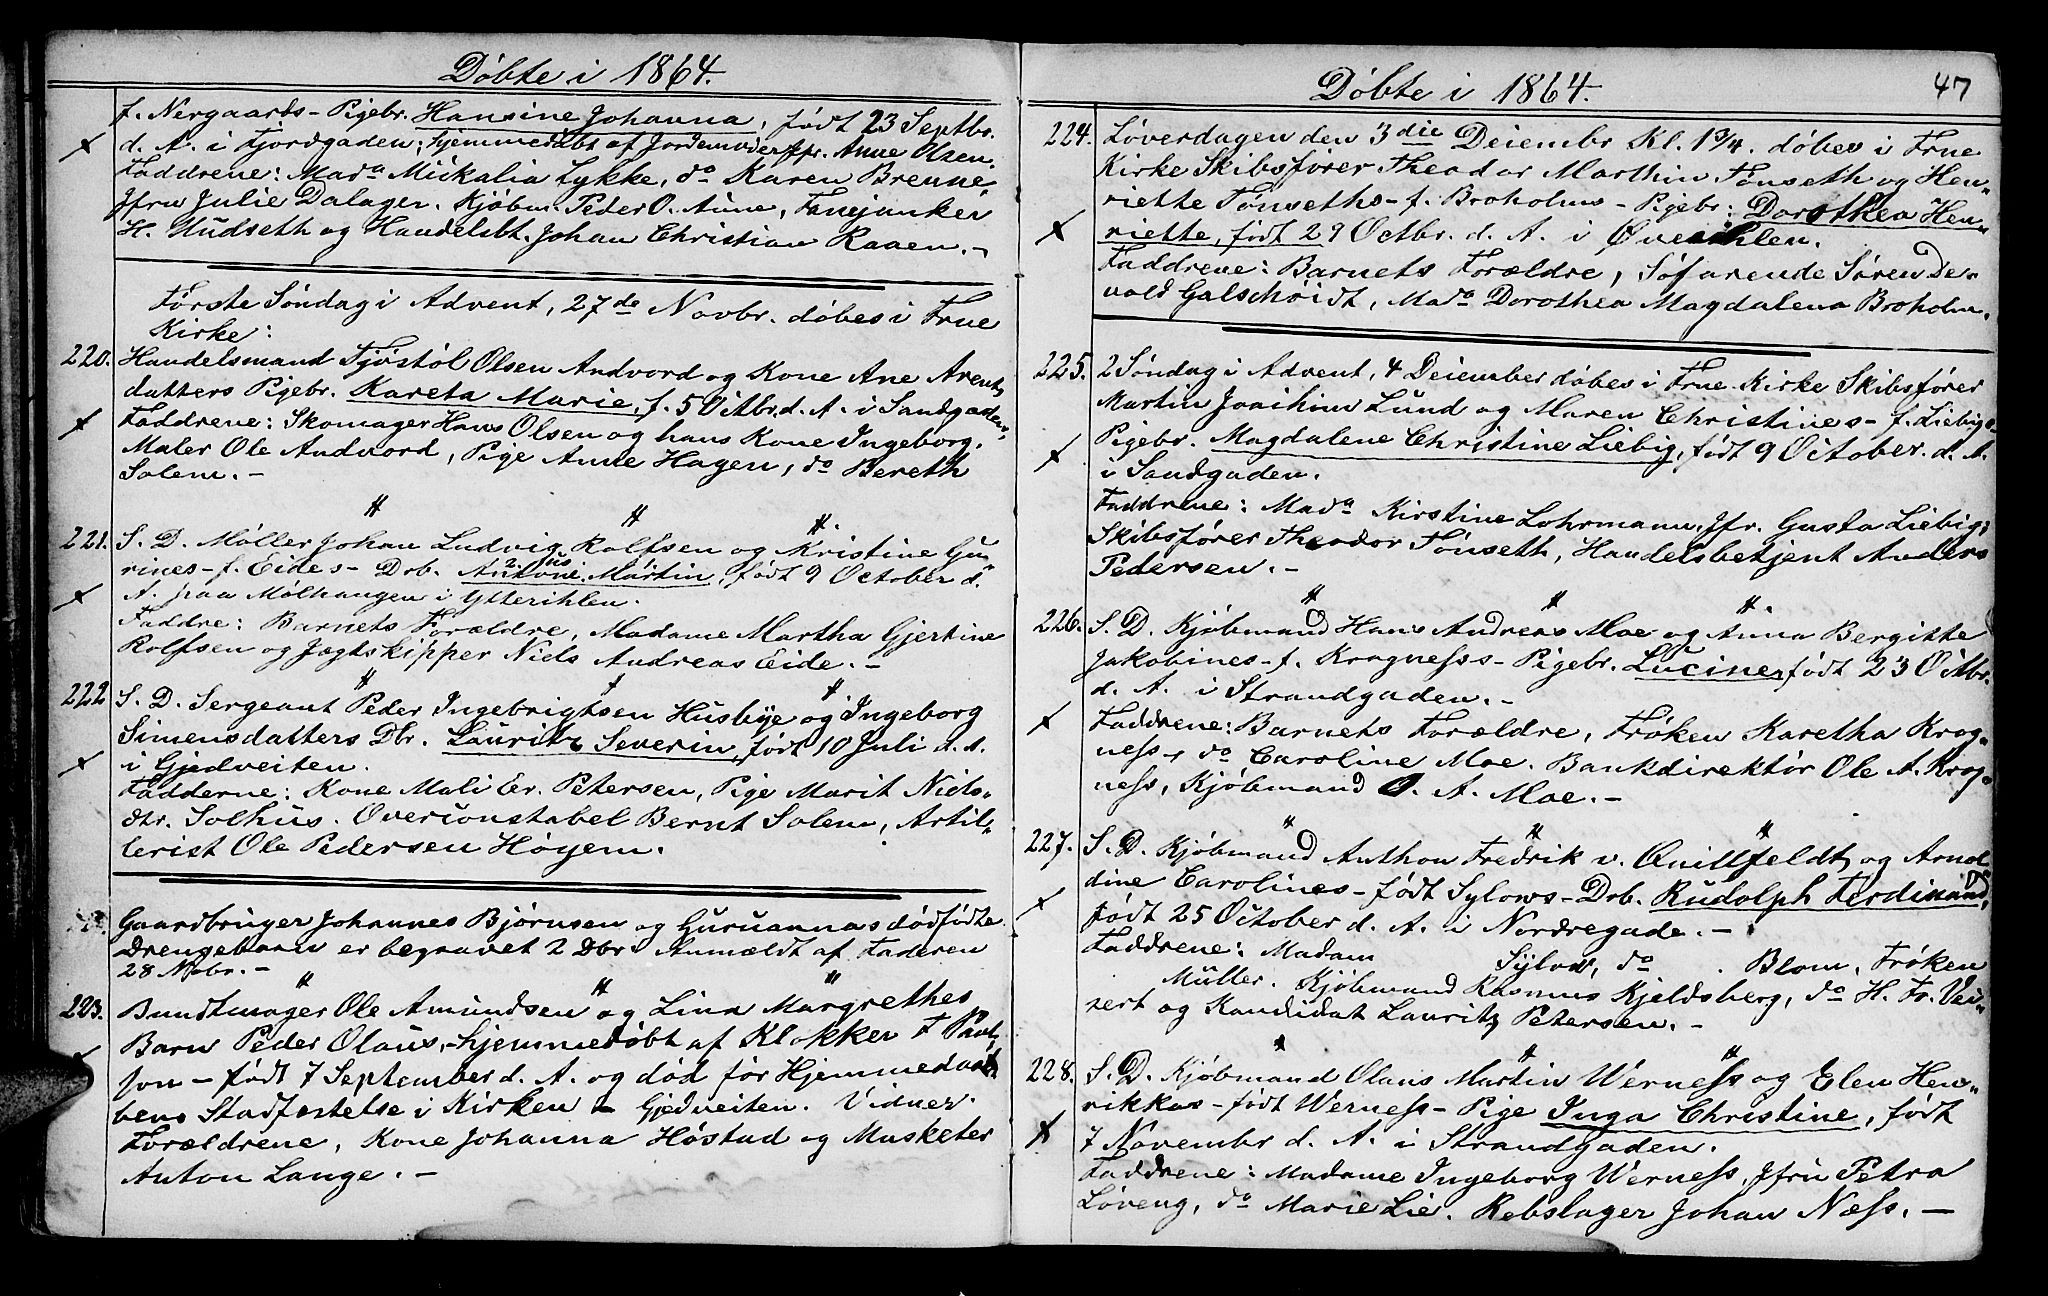 Døbte i 1864.
f. Nergaards- Pigebr. Hansine Johanna, født 23 Septbr.
d. A. i Fjordgaden; hjemmedøbt af Jordemoder Jfr. Anne Olsen.
Faddrene: Mada Mickalia Lykke, do Karen Brenne,
Jfru Julie Dalager. Kjøbm. Peder O. Aune, Fanejunker
H. Hudseth og Handelsbt. Johan Christian Raaen. -
Første Søndag i Advent, 27de Novbr. døbes i Frue
Kirke:
220. Handelsmand Tjøstøl Olsen Andvord og Kone Ane Arent,
datters Pigebr. Kareta Marie, f. 5 Octbr. d. A. i Sandgaden,
Faddrene: Skomager Hans Olsen og hans Kone Ingeborg,
Maler Ole Andvord, Pige Anne Hagen, do Bereth
Solem. -
221. S. D. Møller Johan Ludvig Rolfsen og Kristine Gu-
rines- f. Eides- Drb. Antoni Martin, født 9 October d.
A. paa Mølhaugen i Ytterihlen.
Faddre: Barnets Forældre, Madame Martha Gjertine
Rolfsen og Jægtskipper Niels Andreas Eide. -
222 S. D. Sergeant Peder Ingebrigtsen Husbye og Ingeborg
Simensdatters Dbr. Lauritz Severin, født 10 Juli d. A.
i Gjedveiten.
Fadderne: Kone Mali Er. Petersen, Pige Marit Niels-
dtr. Solhus. Overconstabel Bernt Solem, Artil-
lerist Ole Pedersen Høyem.
Gaardbruger Johannes Bjørnsen og Guruannas dødfødte
Drengebarn er begravet 2 Dbr. Anmældt af Faderen
28 Nvbr. -
223. Bundtmager Ole Amundsen og Lina Margrethes
Barn Peder Olaus, hjemmedøbt af Klokker F Paul-
son - født 7 September d. A. og død før Hjemmedaa-
bens Stadfæstelse i Kirken - Gjedveiten. Vidner:
Forældrene, Kone Johanna Høstad og Musketer
Anton Lange. -
Døbte i 1864.
47
224. Løverdagen den 3die Decembr Kl. 1 3/4. døbes i Frue
Kirke Skibsfører Theodor Marthin Tønseth og Hen-
riette Tønseths- f. Broholms - Pigebr: Dorothea Hen-
riette, født 29 Octbr. d. A. i Øvreihlen.
Faddrene: Barnets Forældre, Søfarende Søren De-
vold Galschøidt, Mada Dorothea Magdalena Broholm.
225. 2 Søndag i Advent, 4 December døbes i Frue Kirke Skibsfører
Martin Joachim Lund og Maren Christines- f. Liebigs-
Pigebr. Magdalene Christine Liebig, født 9 October. d. A.
i Sandgaden.
Faddrene: Mada Kirstine Lohrmann, Jfr. Gusta Liebig,
Skibsfører Theodor Tønseth, Handelsbetjent Anders
Pedersen. -
226. S. D. Kjøbmand Hans Andreas Moe og Anna Bergitte
Jakobines- f. Krogness- Pigebr. Lucine, født 23 Octbr.
d. A. i Strandgaden. -
Faddrene: Barnets Forældre, Frøken Karetha Krog-
ness, do Caroline Moe. Bankdirektør Ole A. Krog-
ness, Kjøbmand O. A. Moe. -
227. S. D. Kjøbmand Anthon Fredrik v. Quillfeldt, og Arnol-
dine Carolines- født Sylows- Drb. Rudolph Ferdinand,
født 25 October d. A. i Nordregade. -
Faddrene: Madam Sylow, do . Blom, Frøken
Müller. Kjøbmand Rasmus Kjeldsberg, do H. Fr. Vei-
sert og Kandidat Lauritz Petersen. -
228. S. D. Kjøbmand Olaus Martin Werness og Elen Hen-
rikkas- født Werness- Pige Inga Christine, født
7 Novembr d. A. i Strandgaden.
Faddrene: Madame Ingeborg Werness, Jfru Petra
Løveng, do Marie Lie. Rebslager Johan Næss. -